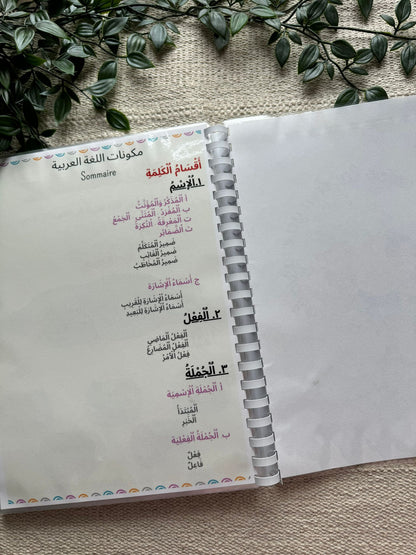 مكونات اللغة العربية
Sommaire
أَقْسَامُ ٱلْكَلِمَةِ
١.ٱلْإِسْمُ
أ ٱلْمُذَكَّرُ وَٱلْمُؤَنَّثُ
ب ٱلْمُفْرَدُ . ٱلْمُثَنَّى . ٱلْجَمْعُ
ت ٱلْمَعْرِفَةُ . ٱلنَّكِرَةُ
ث ٱلضَّمَائِرُ
ضَمِيرُ ٱلْمُتَكَلِّمُ
ضَمِيرُ ٱلْغَائِبِ
ضَمِيرُ ٱلْمُخَاطَبُ
ج أَسْمَاءُ ٱلْإِشَارَةِ
أَسْمَاءُ ٱلْإِشَارَةِ لِلْقَرِيبِ
أَسْمَاءُ ٱلْإِشَارَةِ لِلْبَعِيدِ
٢. ٱلْفِعْلُ
ٱلْفِعْلُ ٱلْمَاضِي
ٱلْفِعْلُ ٱلْمُضَارِعُ
فِعْلُ ٱلْأَمْرُ
٣. ٱلْجُمْلَةُ
أ. ٱلْجُمْلَةُ ٱلْإِسْمِيَّةُ
ٱلْمُبْتَدَأُ
ٱلْخَبَرِ
ب. ٱلْجُمْلَةُ ٱلْفِعْلِيَّةُ
فِعْلٌ
فَاعِلٌ